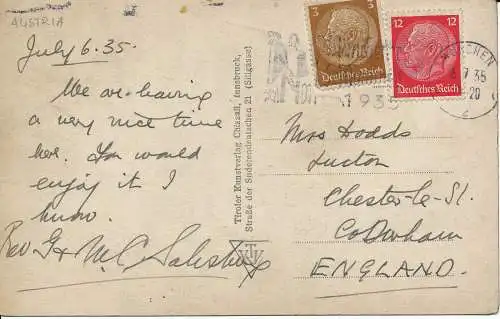 AUSTRIA
July 6. 35.
We are having
a very nice time
here. You would
enjoy it I
know.
Rev G & M. C. Salisbury
Tiroler Kunstverlag Chizzali, Innsbruck,
Straße der Sudetendeutschen 21 (Sillgasse)
TKV
3
Deutsches Reich
12
Deutsches Reich
MÜNCHEN
7 35
20
1935
Mrs Dodds
Chester-le-St.
Co Durham
ENGLAND.